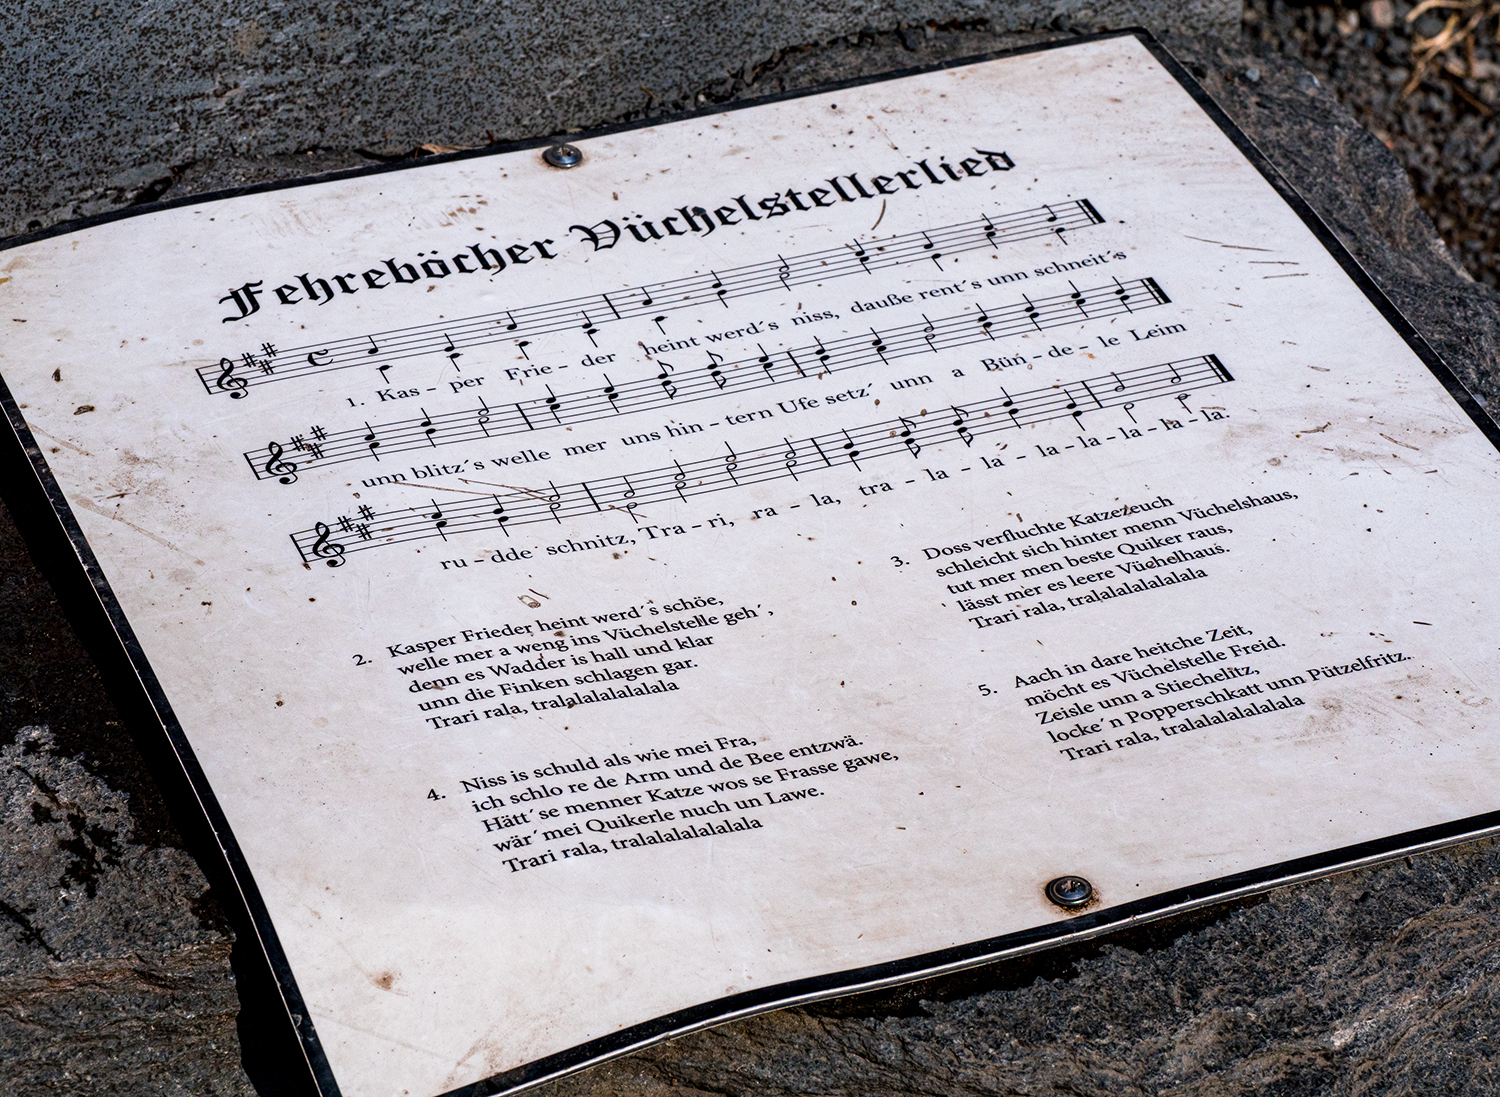 Fehreböcher Vüchelstellerlied
1. Kas - per Frie - der heint werd´s niss, dauße rent´s unn schneit´s
unn blitz´s welle mer uns hin - tern Ufe setz´ unn a Bün - de - le Leim
ru - dde schnitz, Tra - ri, ra - la, tra - la - la - la - la - la - la - la.
2. Kasper Frieder heint werd´s schöe,
welle mer a weng ins Vüchelstelle geh´,
denn es Wadder is hall und klar
unn die Finken schlagen gar.
Trari rala, tralalalalalalala
3. Doss verfluchte Katzezeuch
schleicht sich hinter menn Vüchelshaus,
tut mer men beste Quiker raus,
lässt mer es leere Vüchelhaus.
Trari rala, tralalalalalalala
4. Niss is schuld als wie mei Fra,
ich schlo re de Arm und de Bee entzwä.
Hätt´se menner Katze wos se Frasse gawe,
wär´mei Quikerle nuch un Lawe.
Trari rala, tralalalalalalala
5. Aach in dare heitche Zeit,
möcht es Vüchelstelle Freid.
Zeisle unn a Stiechelitz,
locke´n Popperschkatt unn Pützelfritz.
Trari rala, tralalalalalalala